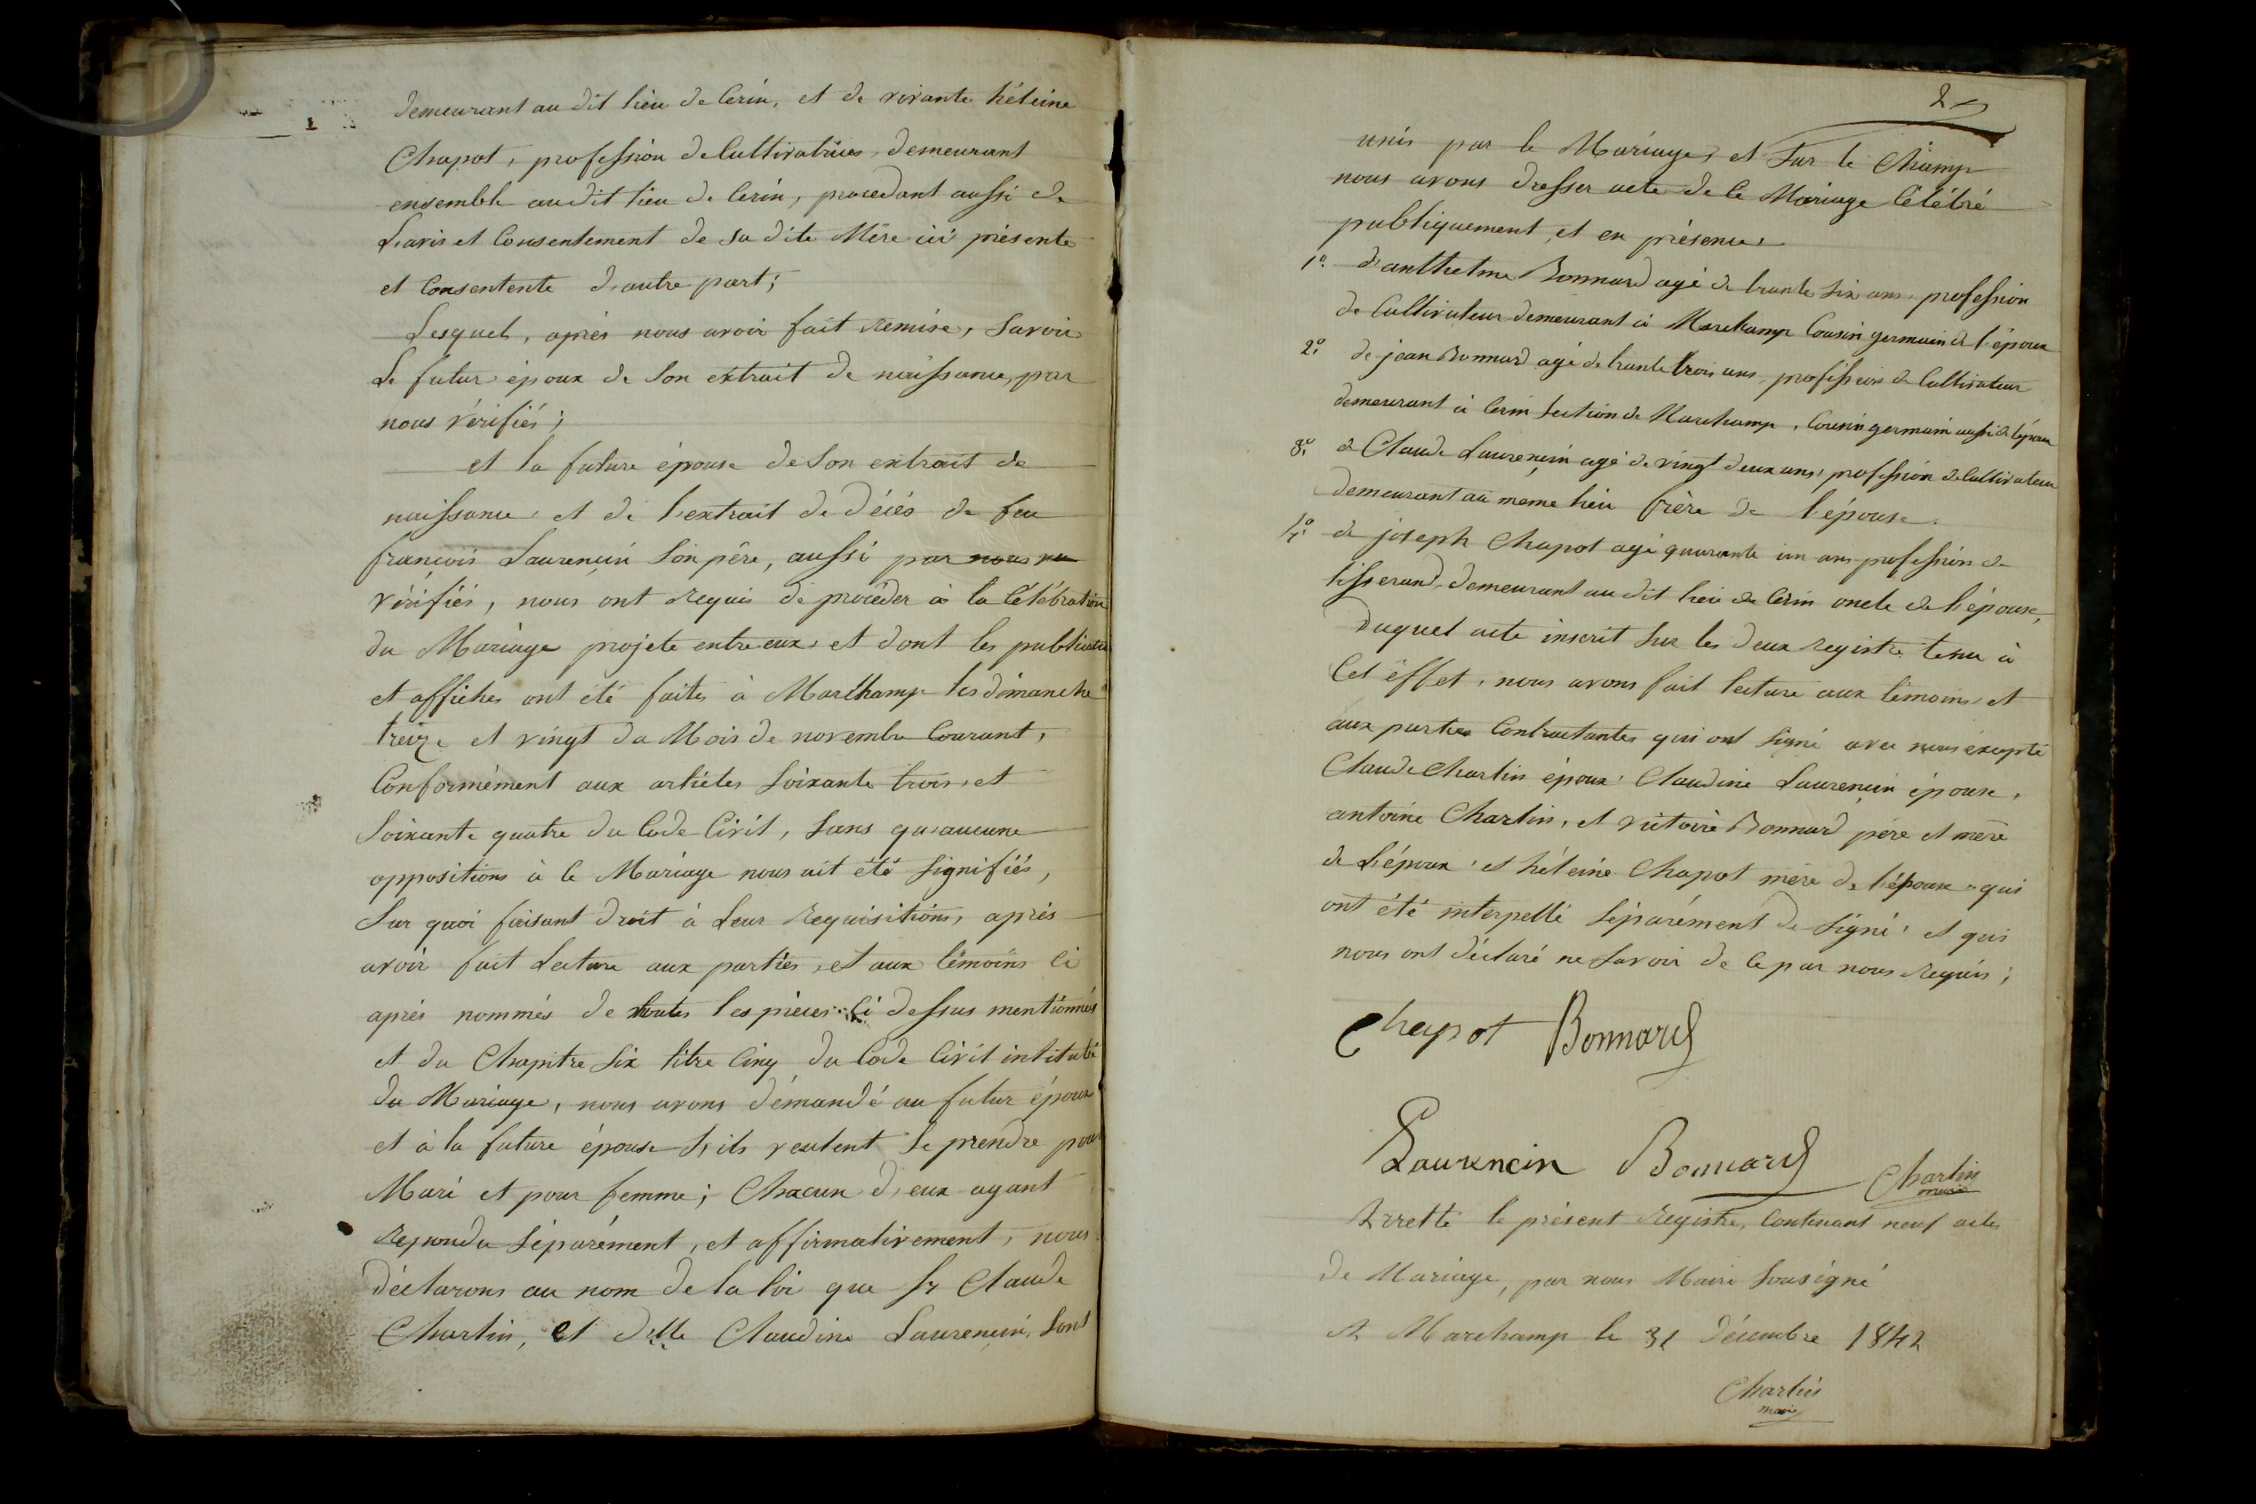 demeurant au dit lieu de Cerin, et de vivante héleine
Chapot, profession de Cultivatrices, demeurant
ensemble audit lieu de Cerin, procedant aussi de
L'avis et Consentement de sa dite Mère ici présente
et Consentente d'autre part;
Lesquels, après nous avoir fait remise, Savoir
Le futur époux de Son extrait de naissance, par
nous vérifiés;
et la future épouse de Son extrait de
naissance, et de l'extrait de décés de feu
françois Laurençin Son père, aussi par nous
vérifiés, nous ont requis de procéder à la Célébration
du Mariage projete entre eux, et dont les publications
et affiches ont été faites à Marchamp les dimanche
treize et vingt du Mois de novembre Courant,
Conformément aux articles Soixante trois, et
Soixante quatre du Code Civil, Sans qu'aucune
oppositions à Ce Mariage nous ait été Signifiés,
Sur quoi faisant droit à Leur Requisitions, après
avoir fait Lecture aux parties, et aux témoins Ci
après nommés de toutes les pièces Ci dessus mentionnés
et du Chapitre Six titre Cinq du Code Civil intitulé
du Mariage, nous avons démandé au futur époux
et à la future épouse S'ils veulent Se prendre pour
Mari et pour femme; Chacun d'eux ayant
repondu Séparément, et affirmativement, nous
déclarons au nom de la loi que Sr Claude
Charlin, et dlle Claudine Laurençin, Sont
2
unis par le Mariage, et Sur le Champ
nous avons dresser acte de Ce Mariage Célébré
publiquement, et en présence,
1º. d'anthelme Bonnard agé de trante Six ans, profession
de Cultivateur demeurant à Marchamp Cousin germain de l'époux
2º. de jean Bonnard agé de trante trois ans, profession de Cultivateur
demeurant à Cerin Section de Marchamp, Cousin germain aussi de l'époux
3º. de Claude Laurençin agé de vingt deux ans, profession de Cultivateur
demeurant au même lieu frère de l'épouse.
4º. de joseph Chapot agé quarante un ans profession de
tisserand, demeurant au dit lieu de Cerin oncle de l'épouse,
Duquel acte inscrit Sur les deux registre tenu à
Cet éffet, nous avons fait lecture aux témoins, et
aux parties Contractantes qui ont Signé avec nous éxcepté
Claude Charlin époux, Claudine Laurençin épouse,
antoine Charlin, et victoire Bonnard père et mère
de L'époux, et héleine Chapot mère de l'épouse qui
ont été interpellé Séparément de Signé, et qui
nous ont déclaré ne Savoir de Ce par nous requis;
Chapot Bonnard
Laurencin Bonnard Charlin
maire
Arretté le présent Registre, Contenant neuf actes
de Mariage, par nous Maire Sousigné
A Marchamp le 31 décembre 1842
Charlin
maire